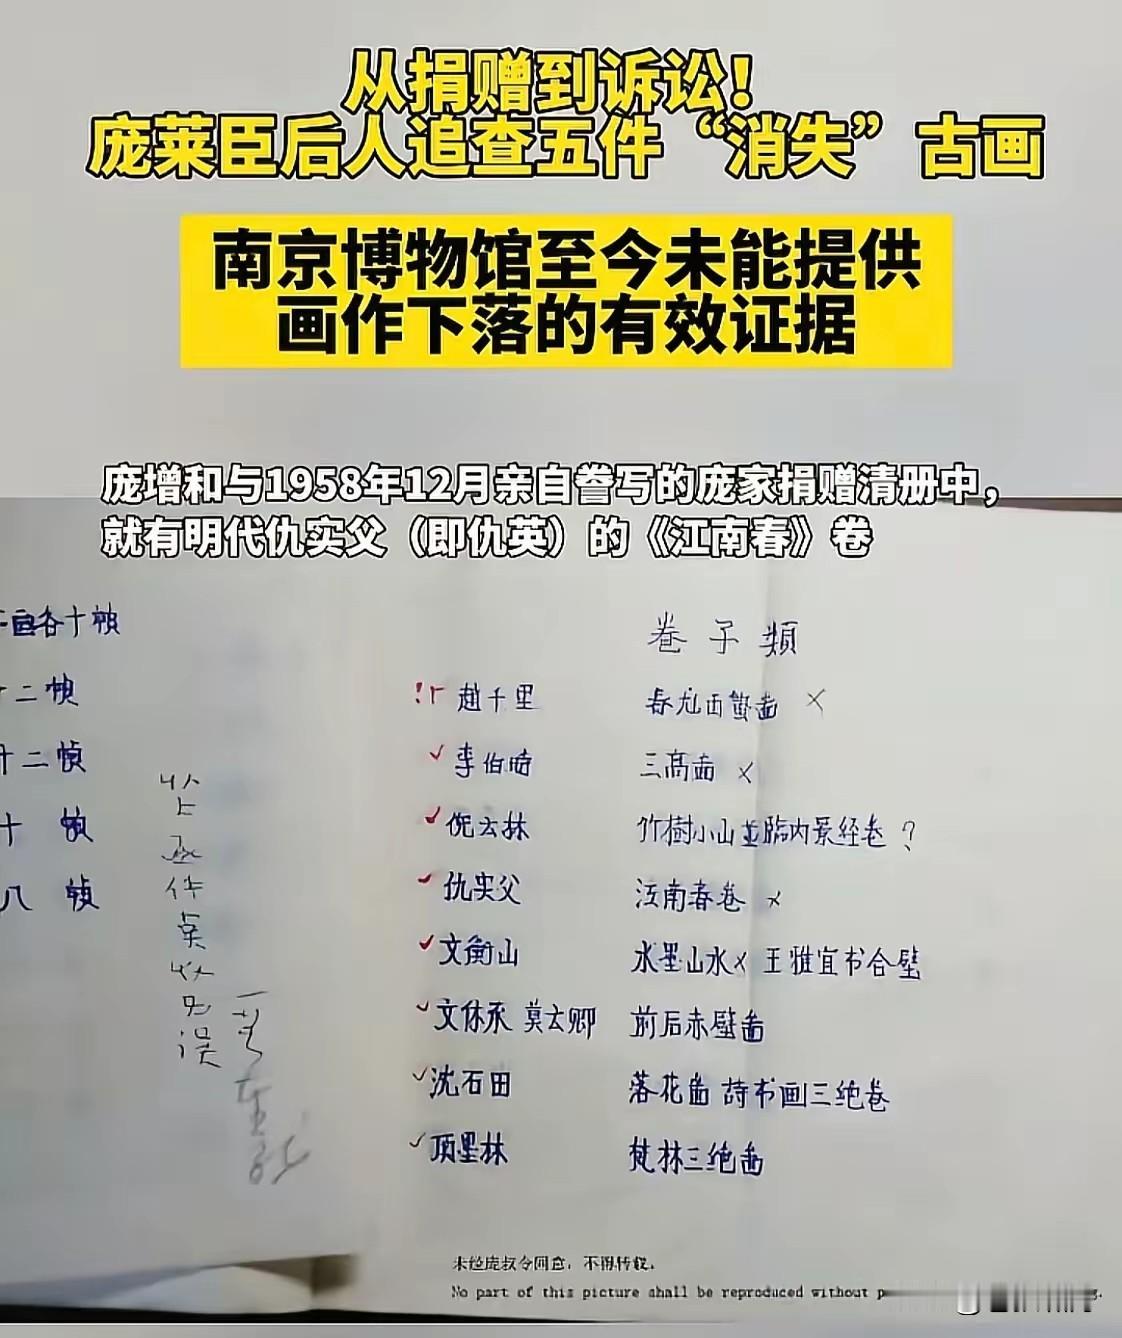 从捐赠到诉讼！
庞莱臣后人追查五件“消失”古画
南京博物馆至今未能提供
画作下落的有效证据
庞增和与1958年12月亲自誊写的庞家捐赠清册中，
就有明代仇实父（即仇英）的《江南春》卷
各十帧
十二帧
廿二帧
十 帧
八 帧
卷子類
趙千里
李伯時 三高啚 ×
倪云林 竹樹小山並臨内景经卷 ?
仇实父 江南春卷 ×
文衡山 水墨山水× 王雅宜书合璧
文休承 莫云卿 前后赤壁啚
沈石田 落花啚 詩书画三绝卷
项墨林 梵林三绝啚
未经庞叔令同意，不得转载。
No part of this picture shall be reproduced without